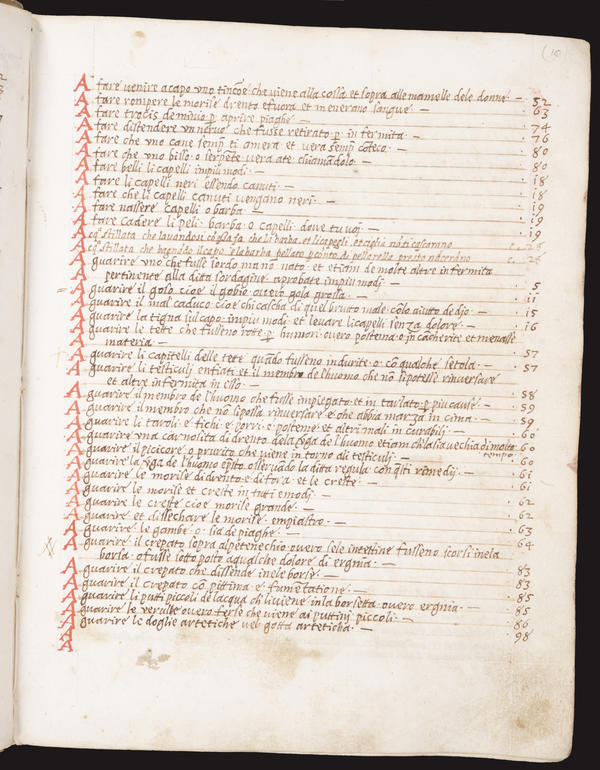 (10)
A fare venire acapo uno tincõe che viene alla cossa et sopra alle mamelle dele donne — 52
A fare rompere le morise drento efuora et in enerano sangue — 63
A fare trocis de minio p̱ aprire piaghe — 74
A fare distendere un nervo che fusse retirato p̱ infermita — 76
A fare che uno cane semp̱ ti amera et vera semp̱ cõteco — 80
A fare che uno bisso o serpẽte vera a te chiamãdolo — 80
A fare belli li capelli impiu modi — 18
A fare li capelli neri essendo canuti — 18
A fare che li capelli canuti vengano neri — 19
A fare nassere capelli o barba — 19
A fare cadere li peli barba o capelli dove tu voi — 19
Acq̃ stillata che lavandosi cõ essa fa che li barba et li capegli et ciglia nõ ti cascarano c. 28
Acq̃ stillata che bagnãdo il capo e la barba pellato presto nacerãno c. 28
A guarire uno che fusse sordo mano nato et etiam de molte altre infermita
pertinente alla dita sordagine aprobate impiu modi — 5
A guarire il goso cioe il gobio overo gola grossa — 11
A guarire il mal caduco cioe chi cascha di quel bruto male cõlo aiuto de dio — 15
A guarire la tigna sul capo impiu modi et levare li capelli senza dolore — 16
A guarire le tette che fusseno rotte p̱ humori overo postema e incacherite et menasse
materia — 57
A guarire li capitelli dele tete quãdo fusseno indurite o cõ qualche setola — 57
A guarire li testiculi enfiati et il membro de l'huomo che nõ sipotesse rinversare
et altre infermita in esso — 58
A guarire il membro de l'huomo che fusse impiegato et intarlato p̱ piu cause — 59
A guarire il membro che nõ sipossa rinversare e che abbia marza in cima — 59
A guarire li taroli e fichi e porri e posteme et altri mali incurabili — 60
A guarire una carnosita di drento dela v̱ga de l'huomo etiam chi la sia vechia di molto tempo 60
A guarire il picicore o prurito che viene intorno ali testiculi — 60
A guarire la v̱ga de l'huomo ep̃sto osservado la dita regula con q̃sti rimedij — 61
A guarire le morise di drento e di fora et le creste — 61
A guarire le morise et creste in tuti e modi — 62
A guarire le creste cioe morise grande — 62
A guarire et dissechare le morise empiastro — 63
A guarire le gambe o sia de piaghe — 64
A guarire il crepato sopra alpetenechio overo sele intestine fusseno scorsi inela
borsa o fusse sottoposto a qualche dolore di ergnia — 83
A guarire il crepato che dissende inele borse — 83
A guarire il crepato cõ pittima e fumẽtatione — 85
A guarire li putti piccoli de l'acqua chi li viene in la borsetta overo ergnia — 85
A guarire le verulle overo ferse che viene ai puttini piccoli — 86
A guarire le doglie artetiche vel gotta arteticha — 98
A